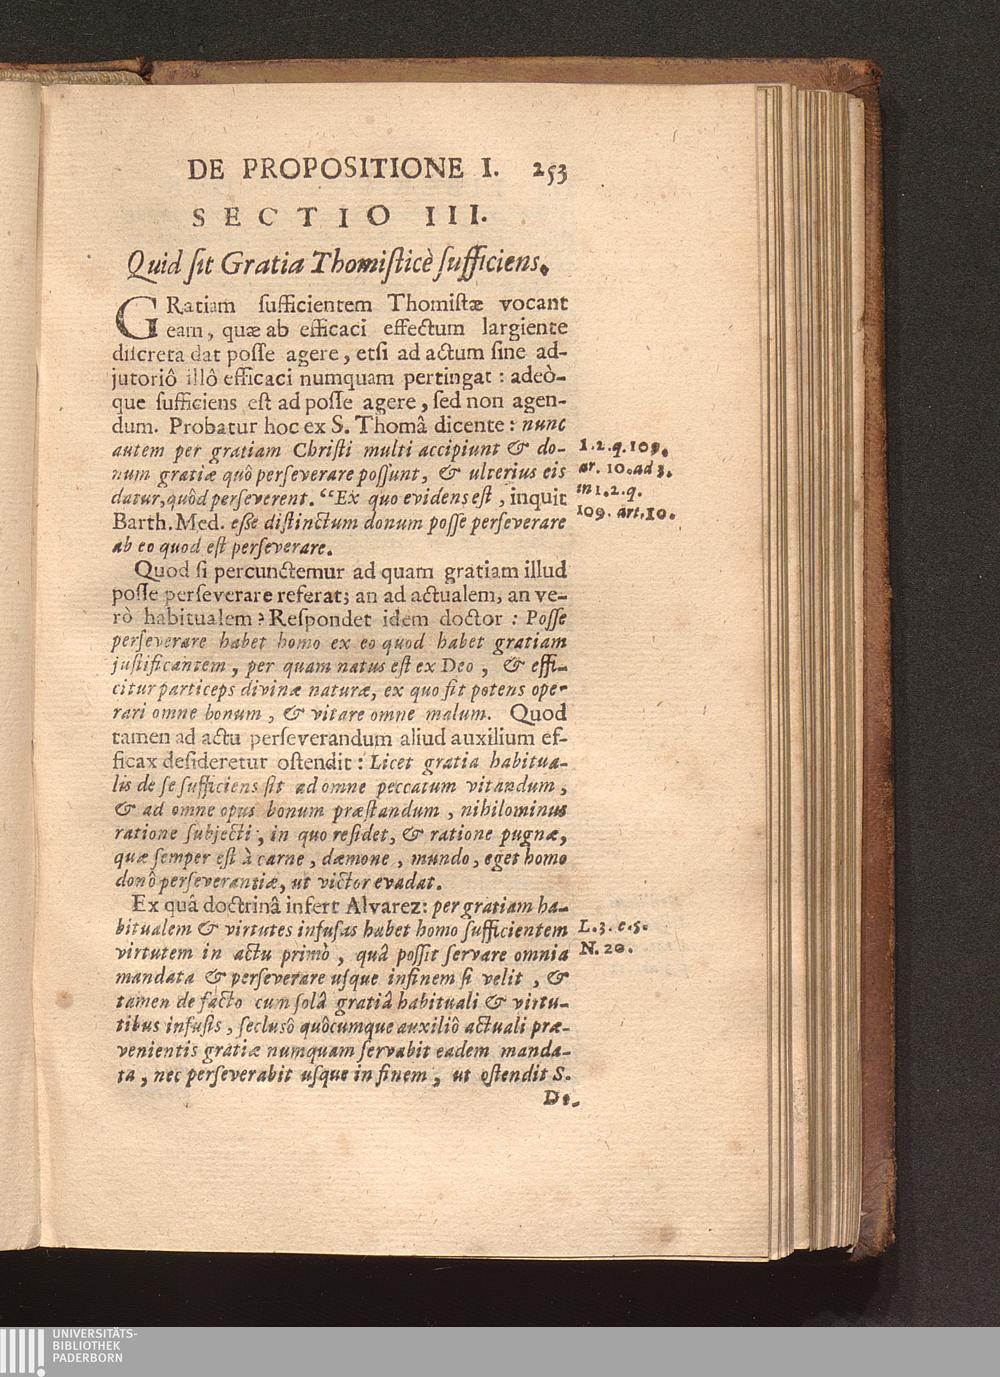 DE PROPOSITIONE I. 253
SECTIO III.
Quid ſit Gratia Thomiſticè ſufficiens.
GRatiam ſufficientem Thomiſtæ vocant
eam, quæ ab efficaci effectum largiente
diſcreta dat poſſe agere, etſi ad actum ſine ad-
jutoriô illô efficaci numquam pertingat : adeò-
que ſufficiens eſt ad poſſe agere, ſed non agen-
dum. Probatur hoc ex S. Thomâ dicente : nunc
autem per gratiam Chriſti multi accipiunt & do-
num gratiæ quô perſeverare poſſunt, & ulterius eis
datur, quòd perſeverent. “Ex quo evidens eſt, inquit
Barth. Med. eſſe diſtinctum donum poſſe perſeverare
ab eo quod eſt perſeverare.
1.2.q.109.
ar. 10. ad 3.
in 1.2.q.
109. art.10.
Quod ſi percunctemur ad quam gratiam illud
poſſe perſeverare referat; an ad actualem, an ve-
rò habitualem? Reſpondet idem doctor : Poſſe
perſeverare habet homo ex eo quod habet gratiam
juſtificantem, per quam natus eſt ex Deo, & effi-
citur particeps divinæ naturæ, ex quo fit potens ope-
rari omne bonum, & vitare omne malum. Quod
tamen ad actu perſeverandum aliud auxilium ef-
ficax deſideretur oſtendit : Licet gratia habitua-
lis de ſe ſufficiens ſit ad omne peccatum vitandum,
& ad omne opus bonum præſtandum, nihilominus
ratione ſubjecti, in quo reſidet, & ratione pugnæ,
quæ ſemper eſt à carne, dæmone, mundo, eget homo
donô perſeverantiæ, ut victor evadat.
Ex quâ doctrinâ infert Alvarez: per gratiam ha-
bitualem & virtutes infuſas habet homo ſufficientem
virtutem in actu primò, quâ poſſit ſervare omnia
mandata & perſeverare uſque in finem ſi velit, &
tamen de facto cum ſolâ gratiâ habituali & virtu-
tibus infuſis, ſecluſô quôcumque auxiliô actuali præ-
venientis gratiæ numquam ſervabit eadem manda-
ta, nec perſeverabit uſque in finem, ut oſtendit S.
L.3. c.5.
N. 20.
De-
UNIVERSITÄTS-
BIBLIOTHEK
PADERBORN